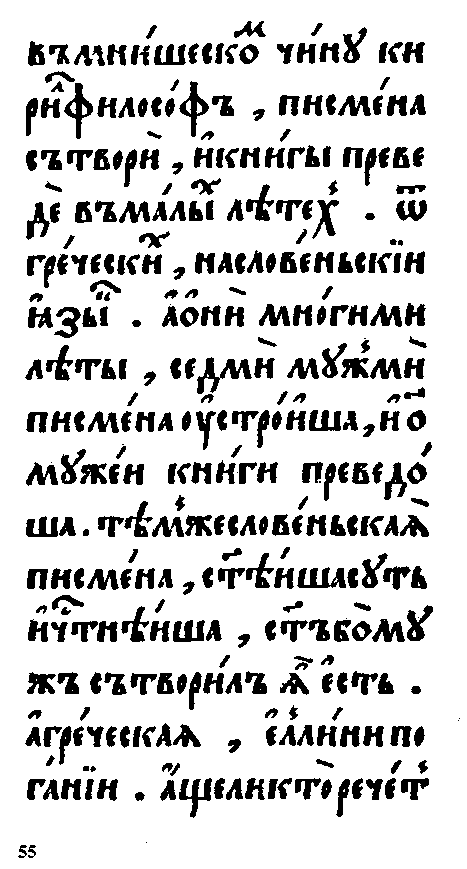 въмни́шескоⷨ чи́нꙋ ки
ри́ⷧ҇ филосо́фъ , писме́на
сътворѝ , и҆кни́гы преве
дѐ въма́лыⷯ лѣ́теⷯ . ѿ
гре́ческиⷯ , наслове́ньскїи
ꙗ҆зы́ⷦ҇ . а҆о҆нѝ мно́гими
лѣ́ты , седмѝ мꙋ́жмѝ
писме́на оу҆стро́иша, и҆о҃
мꙋже́и кни́ги преведо́
ша . тѣ́мжеслове́ньскаѧ̀
писме́на , ст҃ѣ́ишасꙋть
и҆чⷭ҇тнѣ́иша , ст҃ъбо̀мꙋ́
жъ сътвори́лъ ѧ҆̀ є҆́сть .
а҆гре́ческаѧ , є҆́ллини по
га́нїи . а҆́щеликто̀рече́т
55